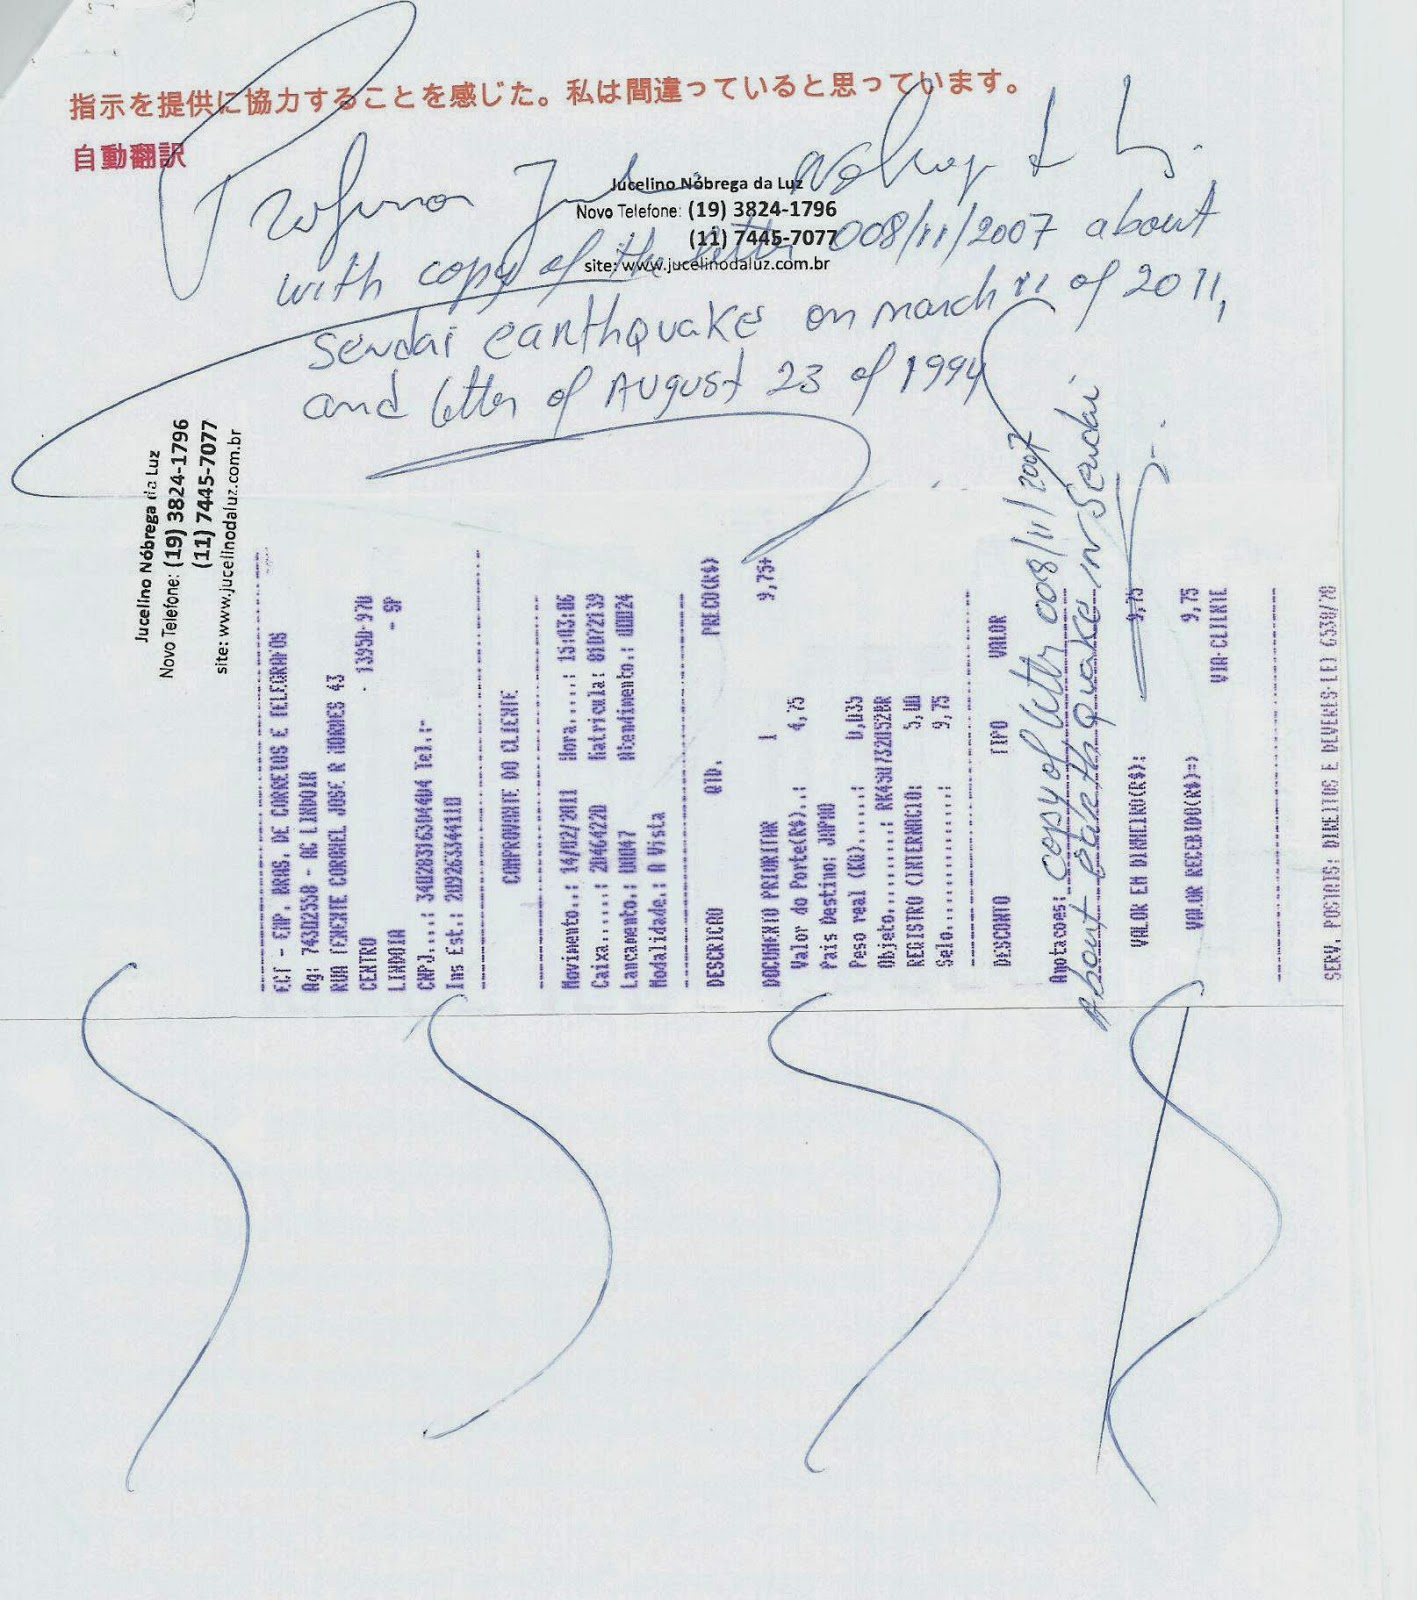 指示を提供に協力することを感じた。私は間違っていると思っています。
自動翻訳
Jucelino Nóbrega da Luz
Novo Telefone: (19) 3824-1796
(11) 7445-7077
site: www.jucelinodaluz.com.br
with copy of the letter 008/11/2007 about
sendai earthquake on march 11 of 2011,
and letter of August 23 of 1994
Jucelino Nóbrega da Luz
Novo Telefone: (19) 3824-1796
(11) 7445-7077
site: www.jucelinodaluz.com.br
ECT - EMP. BRAS. DE CORREIOS E TELEGRAFOS
Ag: 74302558 - AC LINDOIA
RUA TENENTE CORONEL JOSE R MORAES 43
CENTRO - 13950-970
LINDOIA - SP
CNPJ...: 34028316304404 Tel.:-
Ins Est.: 209263344110
COMPROVANTE DO CLIENTE
Movimento.: 14/02/2011 Hora.....: 15:03:06
Caixa.....: 20464220 Matricula: 81072139
Lancamento.: 00047 Atendimento.: 00024
Modalidade.: A Vista
DESCRICAO QTD. PRECO(R$)
DOCUMENTO PRIORITAR 1 9,75+
Valor do Porte(R$)..: 4,75
Pais Destino: JAPAO
Peso real (KG)......: 0,035
Objeto.........: RR450732052BR
REGISTRO (INTERNACIO: 5,00
Selo...............: 9,75
DESCONTO TIPO VALOR
Anotacoes: copy of letter 008/11/2007
About earthquake in Sendai
VALOR EM DINHEIRO(R$): 9,75
VALOR RECEBIDO(R$)=> 9,75
VIA-CLIENTE
SERV. POSTAIS: DIREITOS E DEVERES-LEI 6538/78